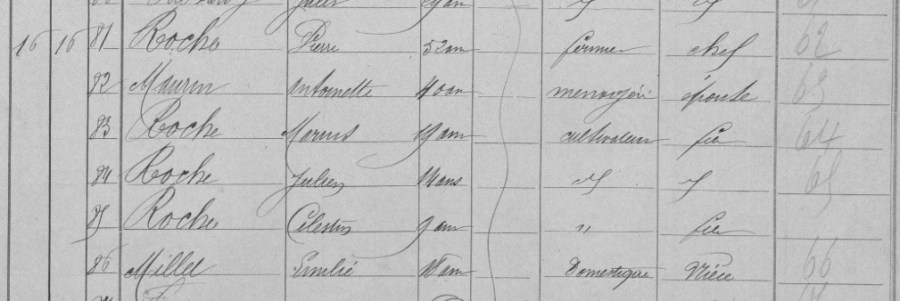 16 16 81 Roche Pierre 52 an fermier chef 62
82 Maurin Antoinette 40 an menagère épouse 63
83 Roche Marius 19 an cultivateur fils 64
84 Roche Julien 14 ans 65
85 Roche Célestin 9 an " fils
86 Millet Emilie an Domestique Nièce 66